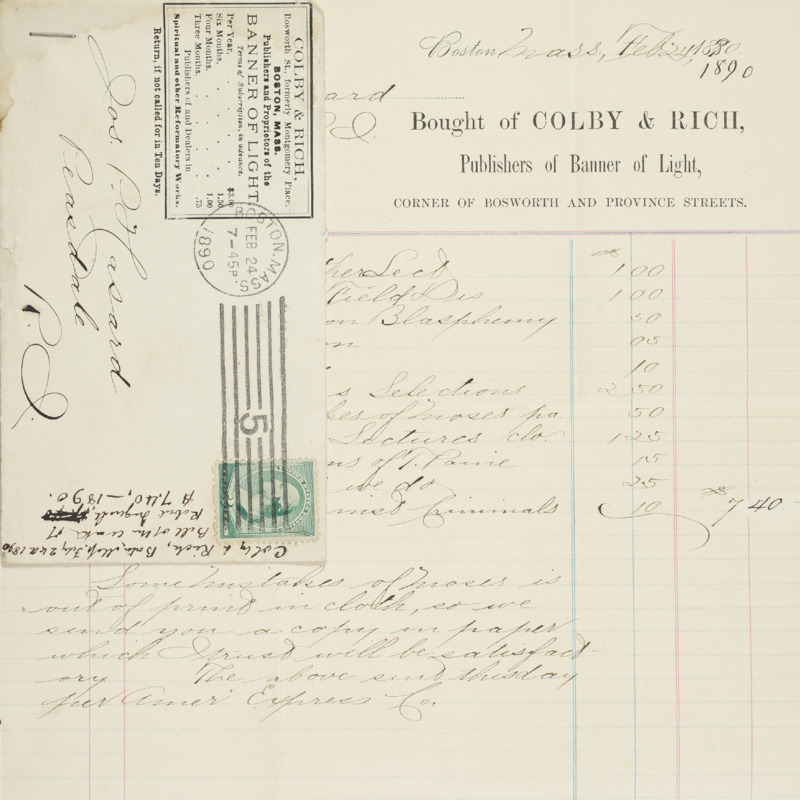 COLBY & RICH,
Bosworth St., formerly Montgomery Place,
BOSTON, MASS.
Publishers and Proprietors of the
BANNER OF LIGHT
Terms of Subscription, in advance.
Per Year, $3.00
Six Months, 1.50
Four Months, 1.00
Three Months, .75
Publishers of and Dealers in
Spiritual and other Reformatory Works.
Return, if not called for in Ten Days.
BOSTON, MASS.
FEB 24
7-45P
1890
5
Jos. P. Hazard
Peasdale
R.I.
Colby & Rich, Boston,
1890
Bill of
Robt Ingersoll,
$7.40,—1890.
Boston Mass, Feb 24, 1890.
1890
ard
R.I.
Bought of COLBY & RICH,
Publishers of Banner of Light,
CORNER OF BOSWORTH AND PROVINCE STREETS.
her Lect 1 00
Field Dis 1 00
on Blasphemy 50
n 05
10
s Selections 2 50
kes of Moses pa. 50
Lectures clo. 1 25
ns of T. Paine 15
we do 25
nist Criminals 10 $7 40
Some Mistakes of Moses is
out of print in cloth, so we
send you a copy in paper
which I trust will be satisfact-
ory. The above sent this day
per Amer Express Co.